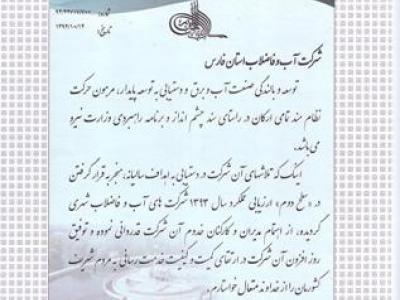 شماره:
تاریخ: ۱۳۹۴/۱۰/۱۴
شرکت آب و فاضلاب استان فارس
توسعه و بالندگی صنعت آب و برق و دستیابی به توسعه پایدار، مرهون حرکت
نظام مند تمامی ارکان در راستای سند چشم انداز و برنامه راهبردی وزارت نیرو
می باشد.
اینک که تلاشهای آن شرکت در دستیابی به اهداف سالیانه، منجر به قرار گرفتن
در «سطح دوم» ارزیابی عملکرد سال ۱۳۹۳ شرکت های آب و فاضلاب شهری
گردیده، از اهتمام مدیران و کارکنان خدوم آن شرکت قدردانی نموده و توفیق
روز افزون آن شرکت در ارتقای کمیت و کیفیت خدمت رسانی به مردم شریف
کشورمان را از خداوند متعال خواستارم.